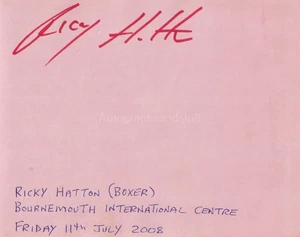 Ricky H.tt
RICKY HATTON (BOXER)
BOURNEMOUTH INTERNATIONAL CENTRE
FRIDAY 11TH JULY 2008